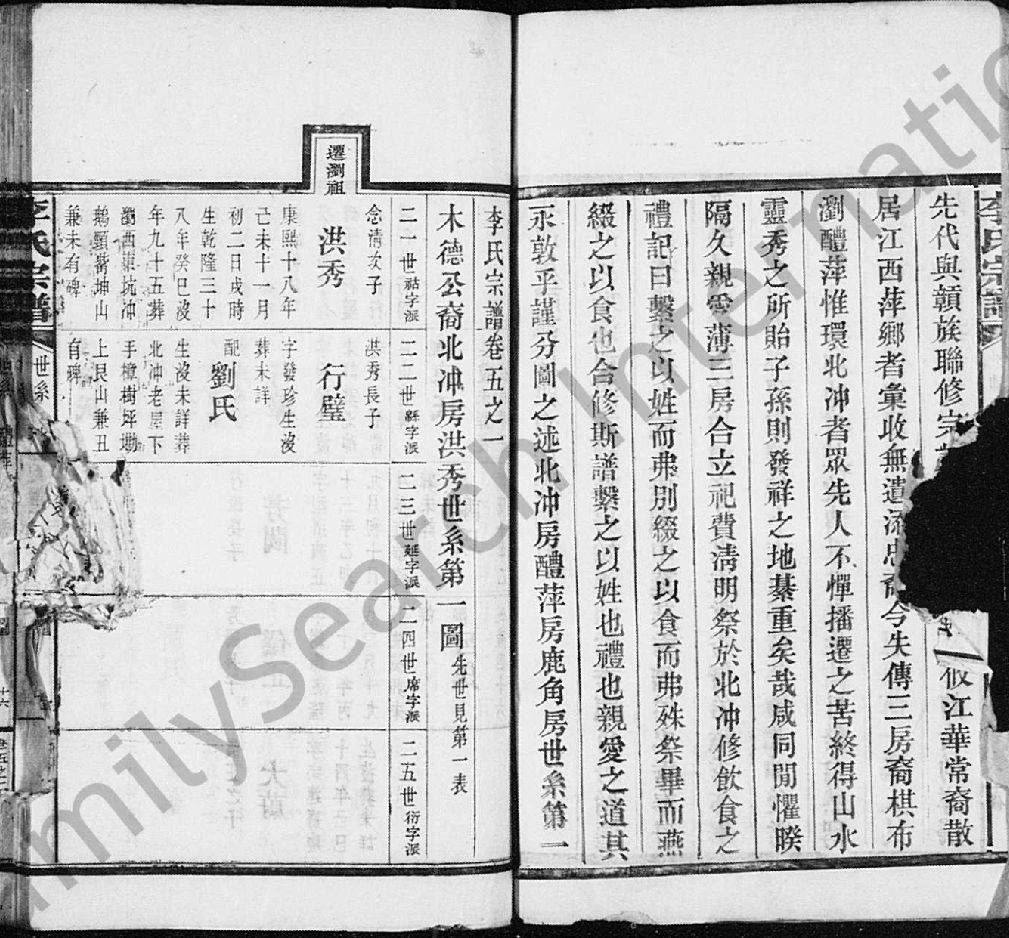 李氏宗譜
先代與贛族聯修宗
攸江華常裔散
居江西萍鄉者彙收無遺
今失傳三房裔棋布
瀏醴萍惟環北沖者眾先人不憚播遷之苦終得山水
靈秀之所貽子孫則發祥之地綦重矣哉咸同閒懼暌
隔久親雲薄三房合立祀費淸明祭於北沖修飲食之
禮記曰繫之以姓而弗別綴之以食而弗殊祭畢而燕
綴之以食也合修斯譜繫之以姓也禮也親愛之道其
永敦乎謹分圖之述北沖房醴萍房鹿角房世系第一
李氏宗譜卷五之一
木德公裔北冲房洪秀世系第一圖 先世見第一表
二一世祜字派
二二世
字派
二三世延字派
二四世席字派
二五世衍字派
遷瀏祖
念清次子
洪秀
康熙十八年
己未十一月
初二日戌時
生乾隆三十
八年癸巳沒
年九十五葬
瀏西東坑冲
鵝頸嘴坤山
兼未有碑
洪秀長子
行璧
字發珍生沒
葬未詳
配
劉氏
生沒未詳葬
北冲老屋下
手樟樹坪坳
上艮山兼丑
有碑
李氏宗譜
世系